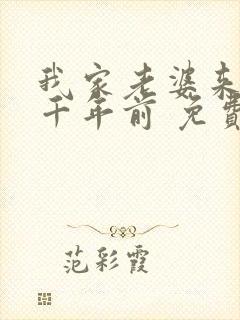 我家老婆来
千年前 免費
范彩霞